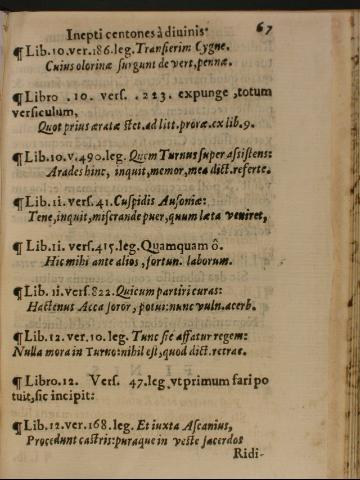 Inepti centones à diuinis· 67
¶ Lib.10.ver.186.leg. Transierim Cygne.
Cuius olorinæ surgunt de vert, pennæ.
¶ Libro .10. vers. .223. expunge ,totum
versiculum,
Quot prius æratæ stet. ad litt. proræ. ex lib. 9.
¶ Lib.10.v.490.leg. Quem Turnus super assistens:
Arades hinc, inquit,memor,mea dict.referte.
¶ Lib.11.vers.41. Cuspidis Ausoniæ:
Tene,inquit,miserande puer,quum læta veniret,
¶ Lib.11.vers.415.leg.Quamquam ô.
Hic mihi ante alios ,fortun. laborum.
¶ Lib.11.vers.822. Quicum partiri curas:
Hactenus Acca soror, potui:nunc vuln.acerb.
¶ Lib.12.ver.10.leg. Tunc sic affatur regem:
Nulla mora in Turno:nihil est,quod dict.retrac.
¶ Libro.12. Vers. 47.leg.vt primum fari po
tuit,sic incipit:
¶ Lib.12.ver.168.leg. Et iuxta Ascanius,
Procedunt castris:puraque in veste sacerdos
Ridi-